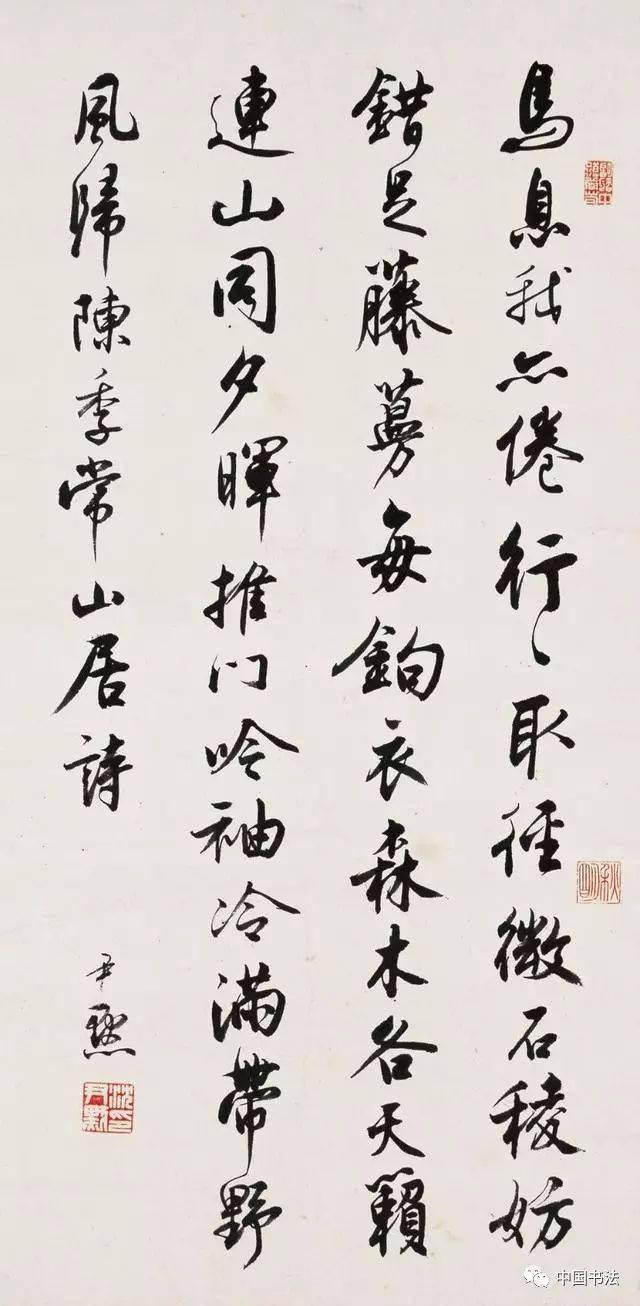 馬息我亦倦行〻取徑微石稜妨
錯足藤蔓每鉤衣森木各天籟
連山同夕暉推門吟袖冷滿帶野
風歸陳季常山居詩
尹默
沈尹默印
秋明
中国书法